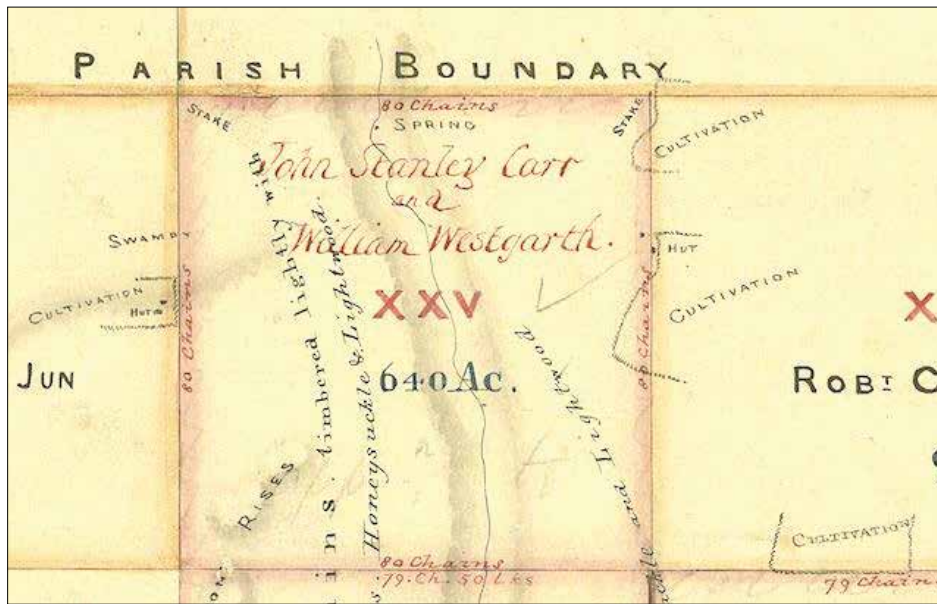 PARISH BOUNDARY
80 Chains
STAKE
SPRING
STAKE
CULTIVATION
John Stanley Carr
and
William Westgarth.
SWAMPY
HUT
CULTIVATION
HUT
CULTIVATION
80 Chains
80 Chains
XXV
X
640 Ac.
JUN
ROBT C
timbered lightly with
Honeysuckle & Lightwood.
and Lightwood
RISES
CULTIVATION
80 Chains
79. Ch. 50 Lks
79 Chain